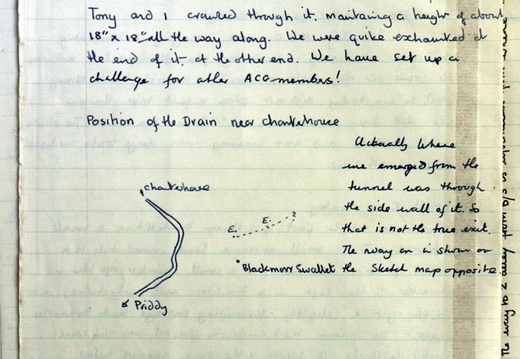 Tony and I crawled through it, maintaining a height of about
18" x 18" all the way along. We were quite exhausted at
the end of it at the other end. We have set up a
challenge for other ACG members!
Position of the Drain near Charterhouse
Actually where
we emerged from the
tunnel was through
the side wall of it. So
that is not the true exit.
The way on is shown on
the sketch map opposite
Charterhouse
E.
E.
?
Blackmoor Swallet
Priddy